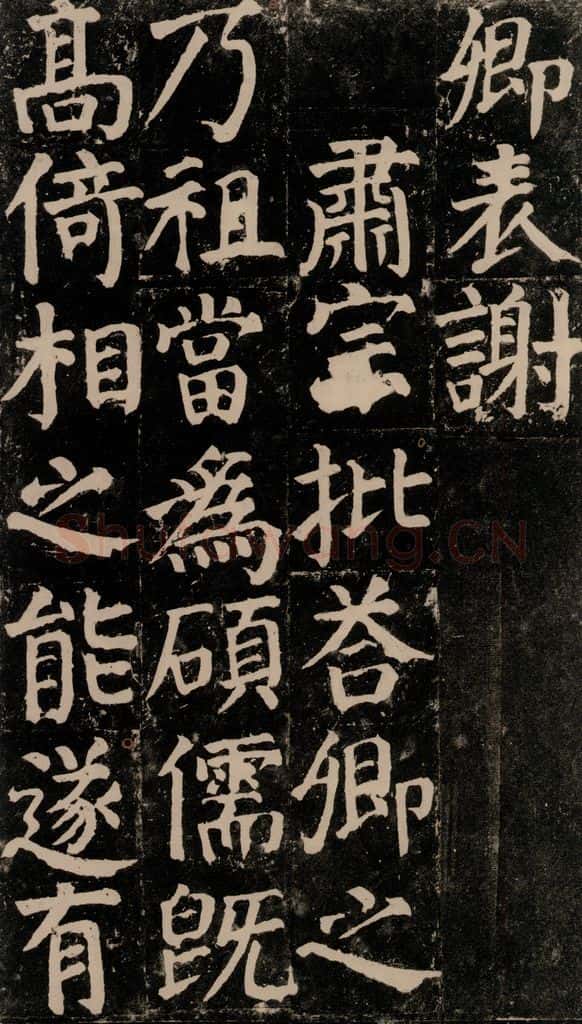 卿表謝
肅宗批荅卿之
乃祖當為碩儒既
高倚相之能遂有
Shufawang.CN